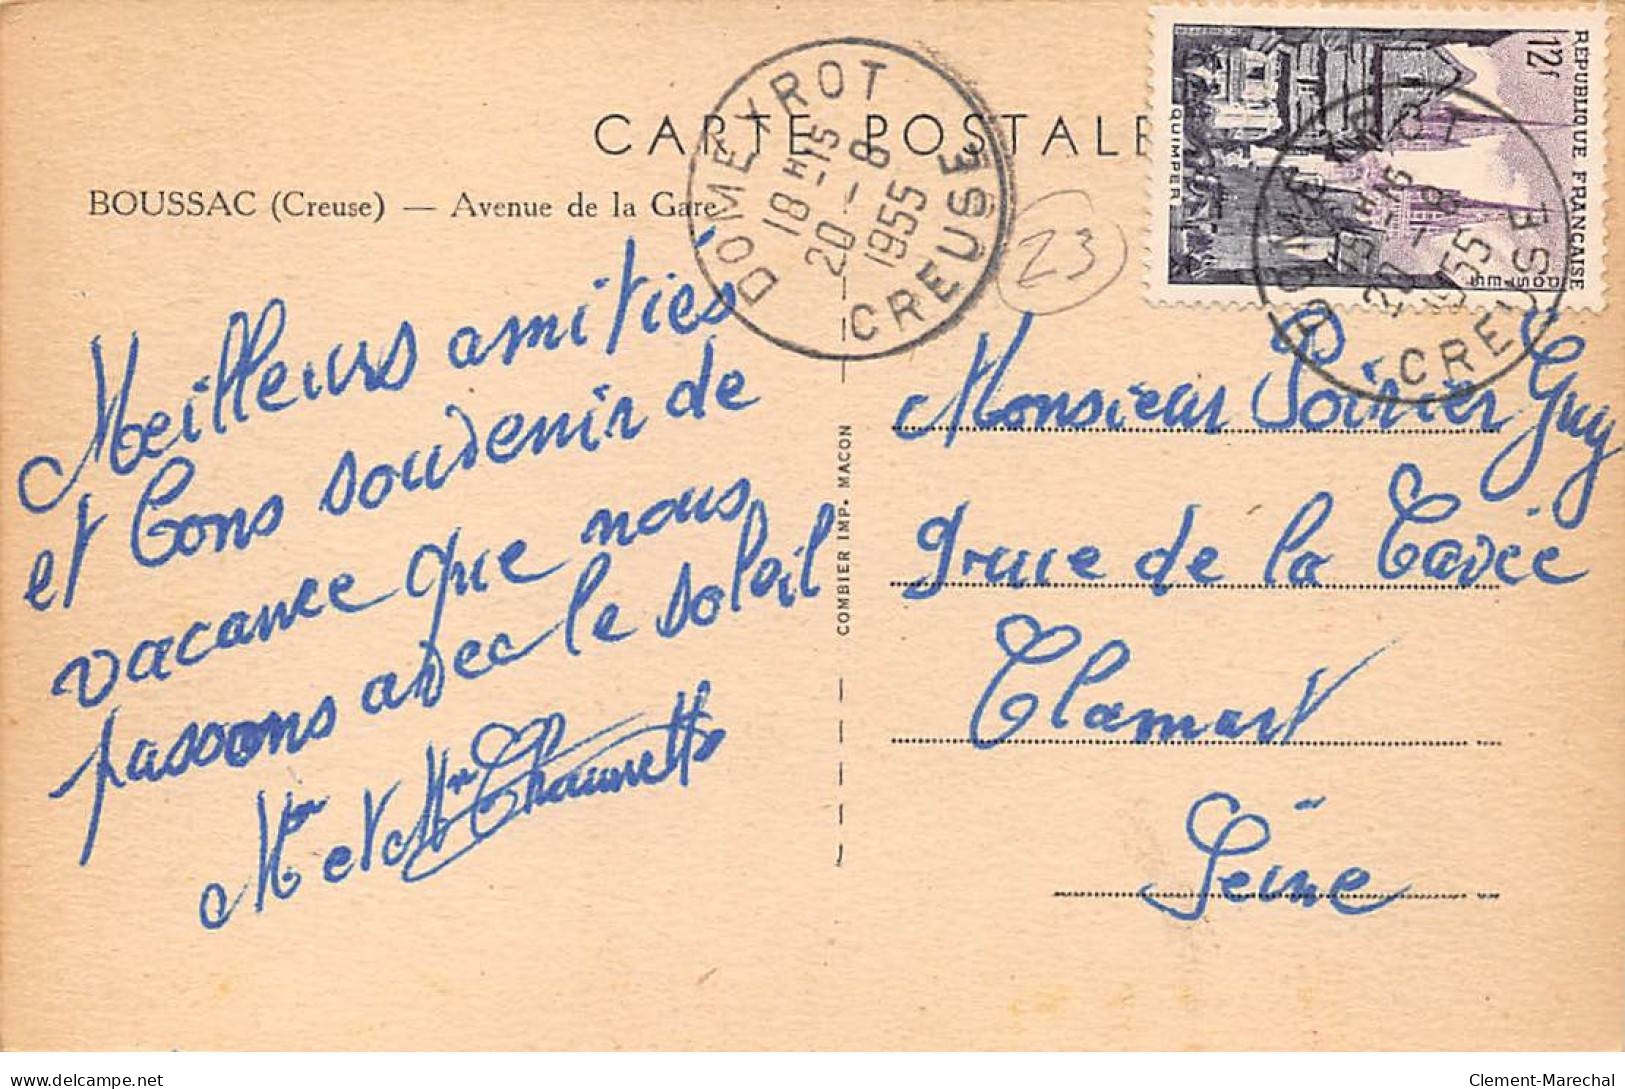 CARTE POSTALE
BOUSSAC (Creuse) — Avenue de la Gare
DOMEYROT
18 H - 15
20 - 8
1955
CREUSE
23
REPUBLIQUE FRANÇAISE
12f
POSTES
QUIMPER
DOMEYROT
18 H - 15
20 - 8
1955
CREUSE
Meilleurs amitiés
et bons souvenir de
vacance que nous
passons avec le soleil
Mr et Mm
COMBIER IMP. MACON
Monsieur Poirier Guy
9 rue de la Cavée
Clamart
Seine
delcampe.net
Clement-Marechal